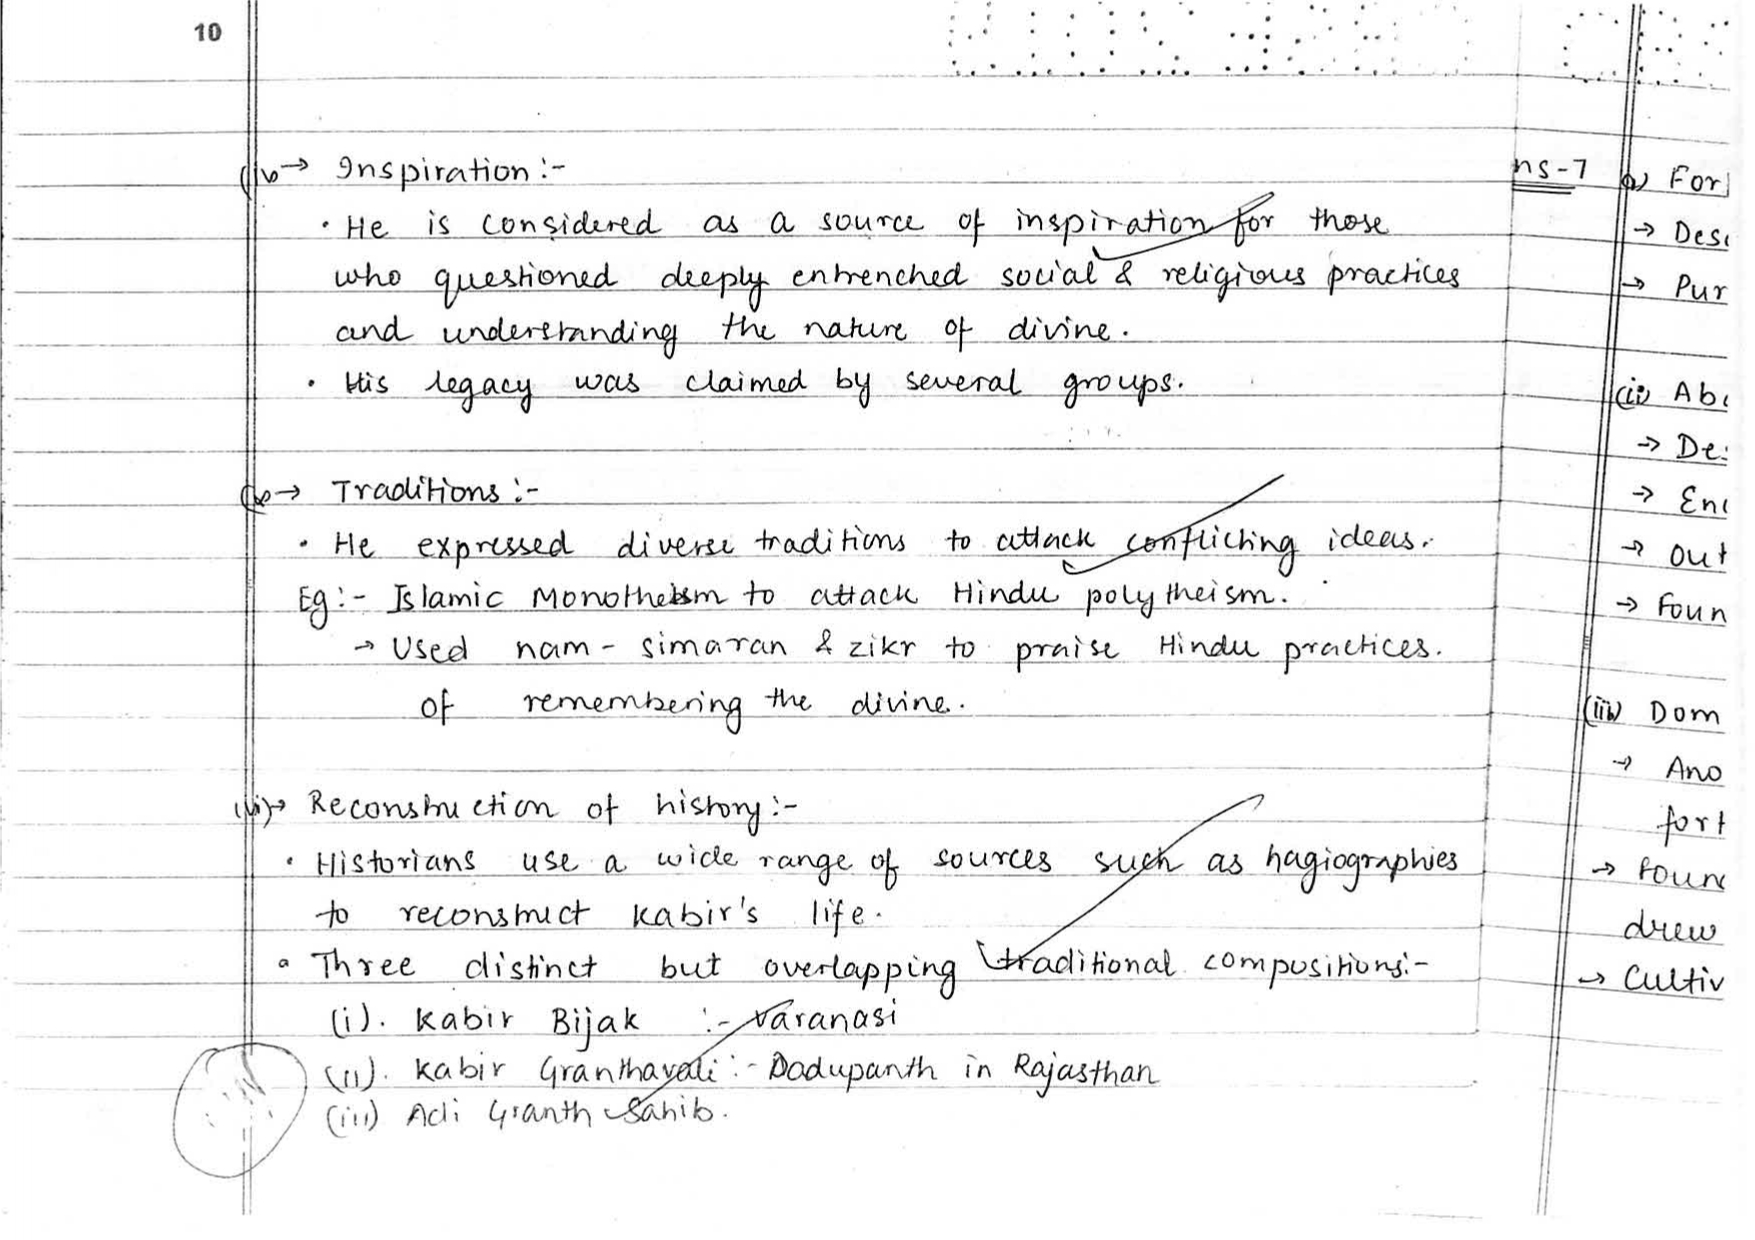 10
(iv)→ Inspiration :-
• He is considered as a source of inspiration for those
who questioned deeply entrenched social & religious practices
and understanding the nature of divine.
• His legacy was claimed by several groups.
(v)→ Traditions :-
• He expressed diverse traditions to attack conflicting ideas.
Eg :- Islamic Monotheism to attack Hindu polytheism.
→ Used nam - simaran & zikr to praise Hindu practices.
of remembering the divine.
(vi)→ Reconstruction of history :-
• Historians use a wide range of sources such as hagiographies
to reconstruct Kabir's life.
• Three distinct but overlapping traditional compositions:-
(i). Kabir Bijak :- Varanasi
(ii). Kabir Granthavali :- Dadupanth in Rajasthan
(iii) Adi Granth Sahib.
ns-7
For
→ Des
→ Pur
(ii) Ab
→ De
→ En
→ out
→ Foun
(iii) Dom
→ Ano
fort
→ Foun
drew
→ Cultiv